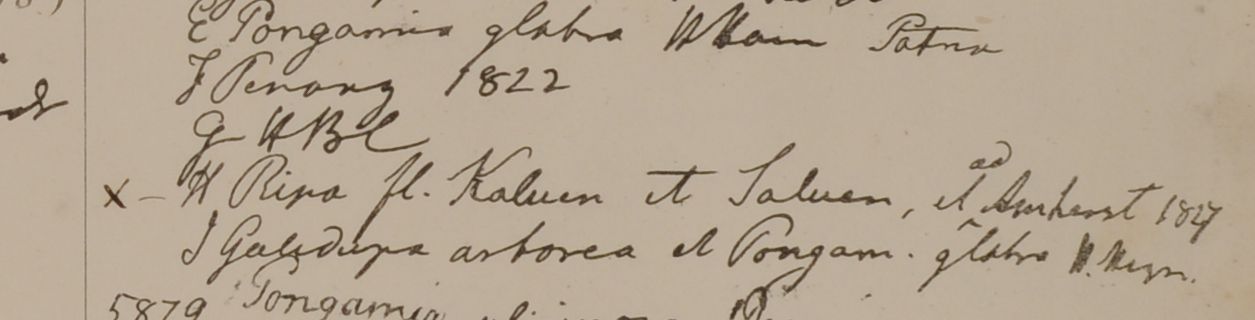 E Pongamia glabra H Ham Patna
F Penang 1822
G HBC
X - H Ripa fl. Kaluen et Saluen, et ad Amherst 1827
I Galedupa arborea et Pongam. glabra H. Heyn.
5879 Pongamia